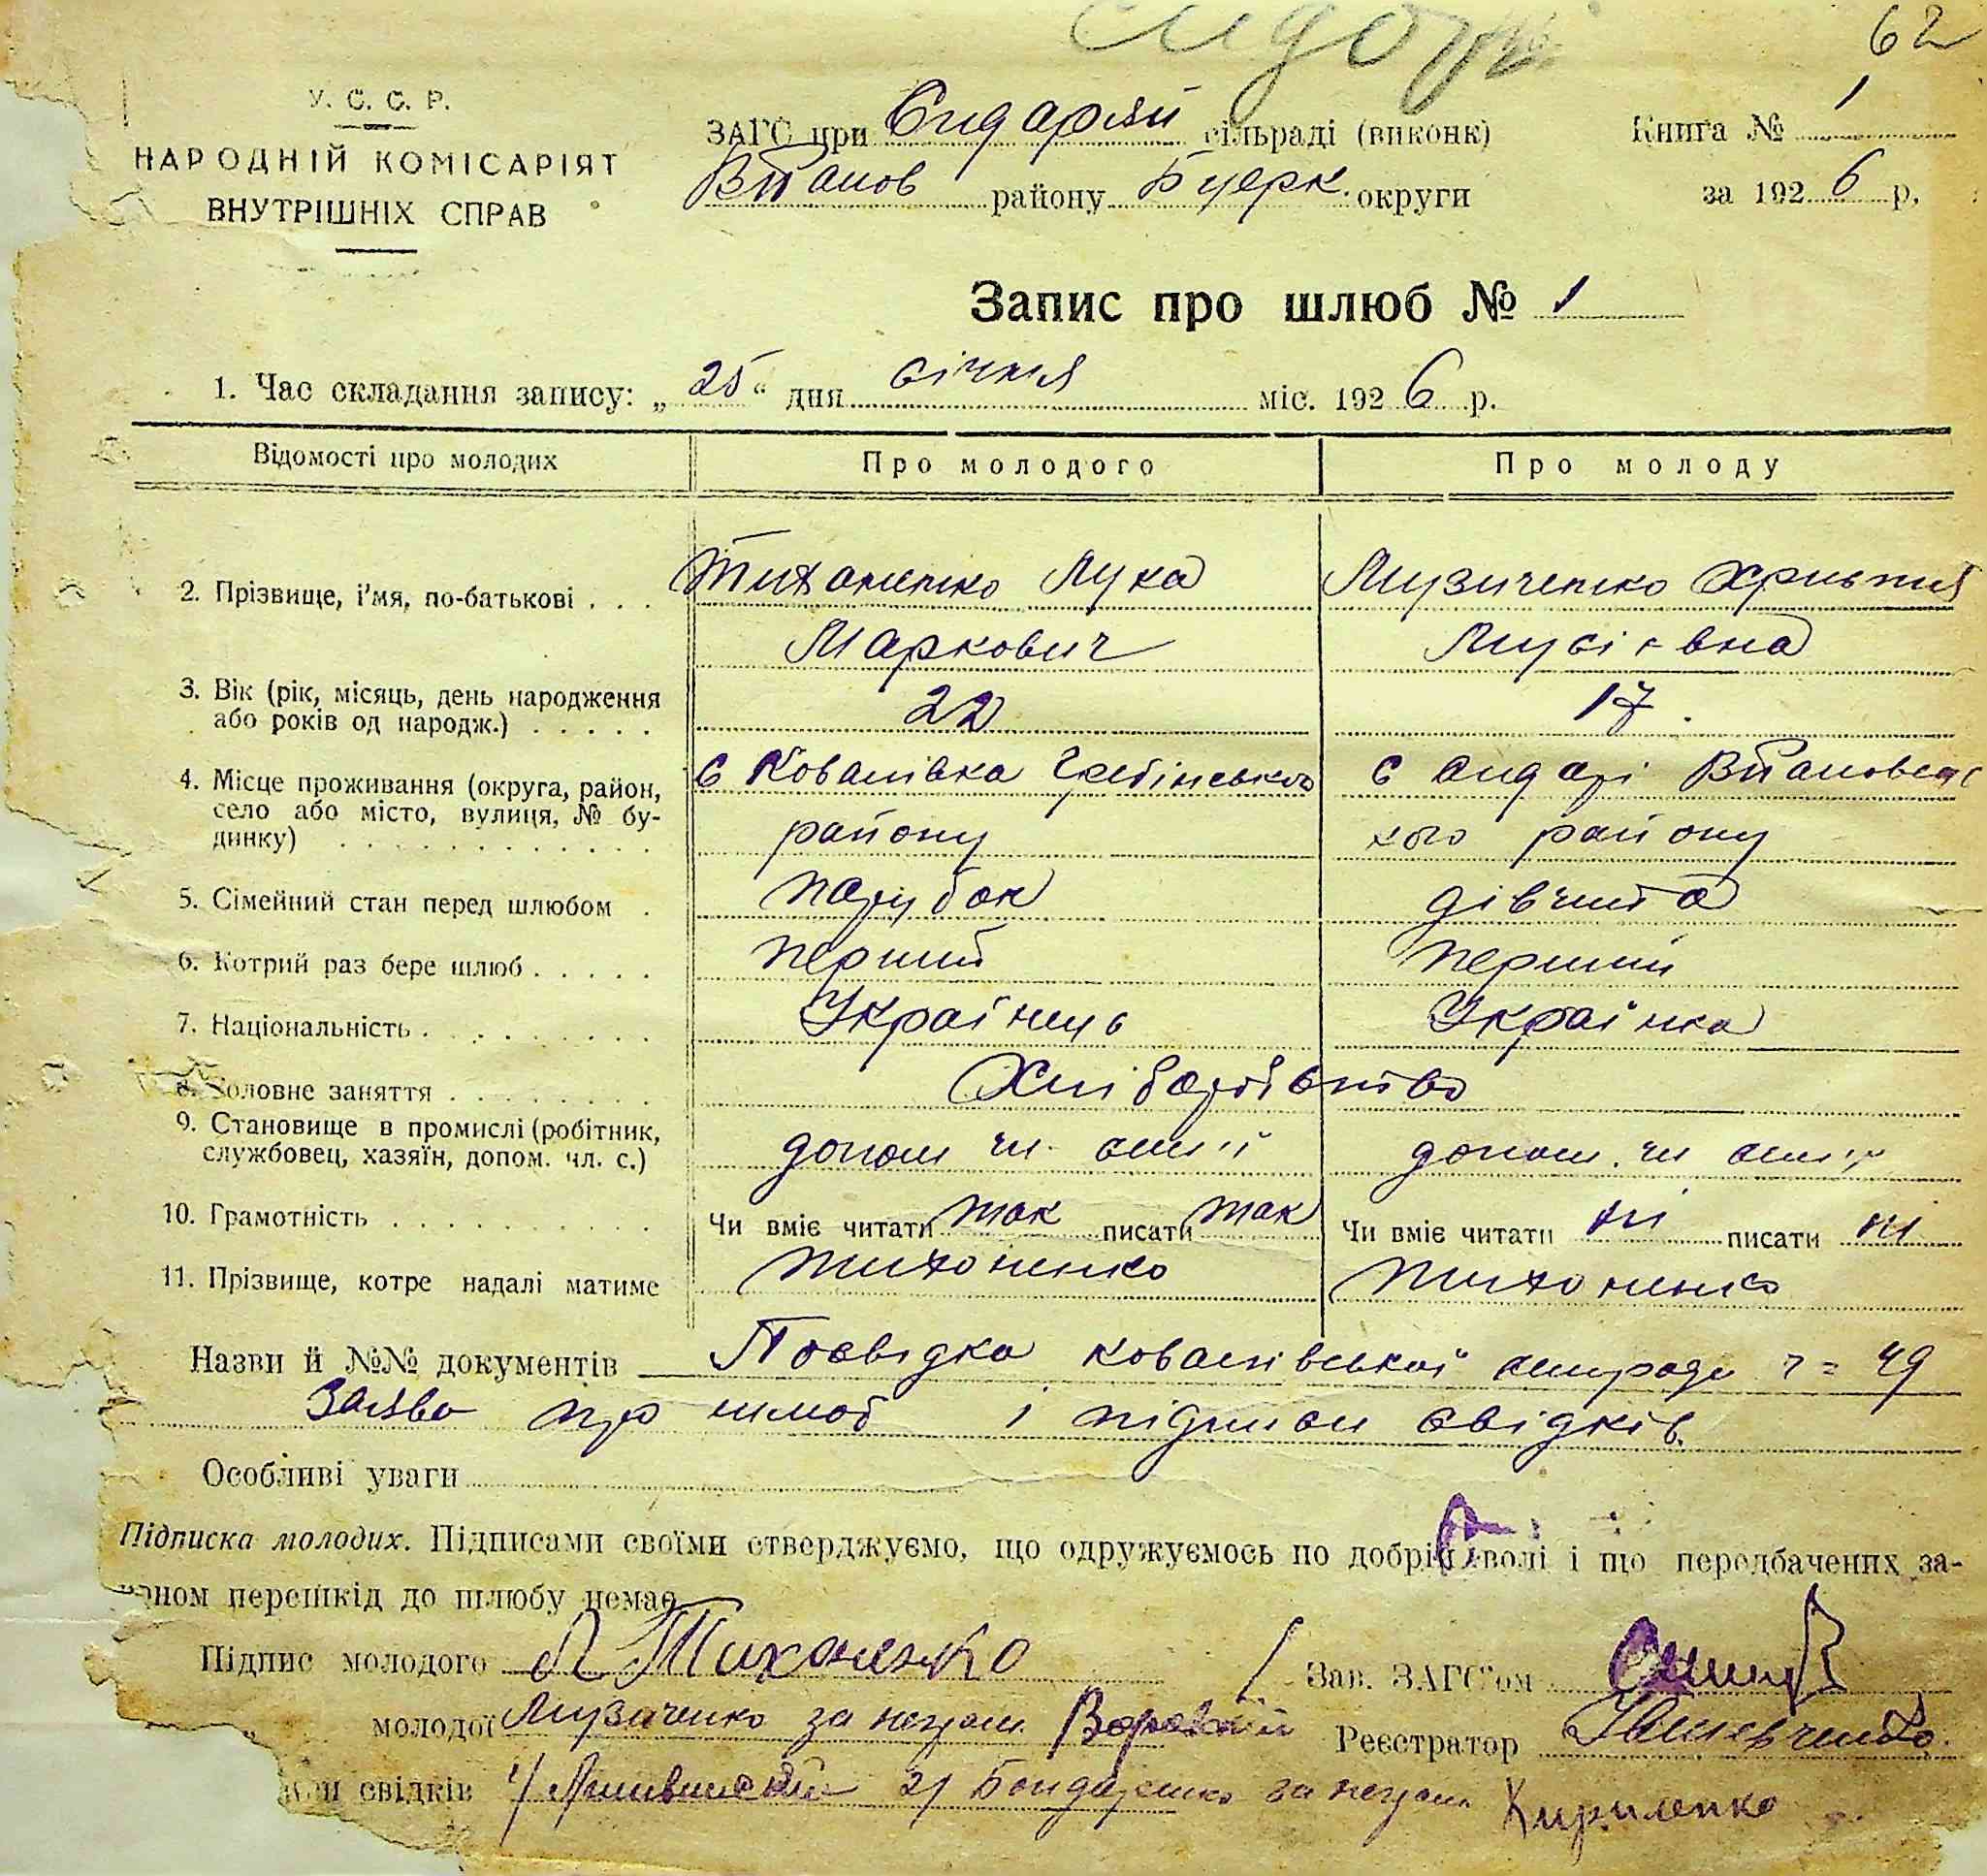 62
У. С. С. Р.
НАРОДНІЙ КОМІСАРІЯТ
ВНУТРІШНІХ СПРАВ
ЗАГС при Сидарській сільраді (виконк)
Книга № 1
району Б церк. округи
за 1926 р.
Запис про шлюб № 1
1. Час складання запису: „25“ дня січня міс. 1926 р.
Відомості про молодих Про молодого Про молоду
2. Прізвище, і'мя, по-батькові . . . Тихоненко Лука Музиченко Христия
Маркович Мусіевна
3. Вік (рік, місяць, день народження
або років од народж.) . . . . . 22 17.
4. Місце проживання (округа, район, С Ковалівка Гребінського с Сидарі
село або місто, вулиця, № бу-
динку) . . . . . . . . . . . . району кого району
5. Сімейний стан перед шлюбом . парубок дівчина
6. Котрий раз бере шлюб . . . . . перший перший
7. Національність . . . . . . . . . Українець Українка
8. Головне заняття . . . . . . . . Хліборобство
9. Становище в промислі (робітник,
службовец, хазяїн, допом. чл. с.) допом чл. сімї допом. чл сімї
10. Грамотність . . . . . . . . . . Чи вміє читати так писати так Чи вміє читати ні писати ні
11. Прізвище, котре надалі матиме Тихоненко Тихоненко
Назви й №№ документів Посвідка ковалівської сільради ч = 49
Заява про шлюб і підписи свідків.
Особливі уваги
Підписка молодих. Підписами своїми стверджуємо, що одружуємось по добрій волі і що передбачених за-
коном перешкід до шлюбу немає
Підпис молодого Л Тихоненко Зав. ЗАГС'ом
молодої Музиченко за неграм. Реєстратор Шевченко
свідків 1/ 2/ Бондаренко за неграм Кириленко